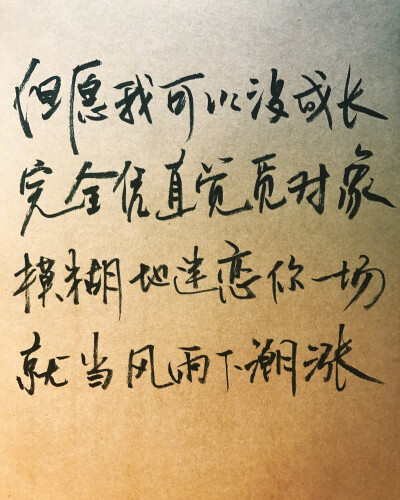 但愿我可以没成长
完全凭直觉觅对象
模糊地迷恋你一场
就当风雨下潮涨